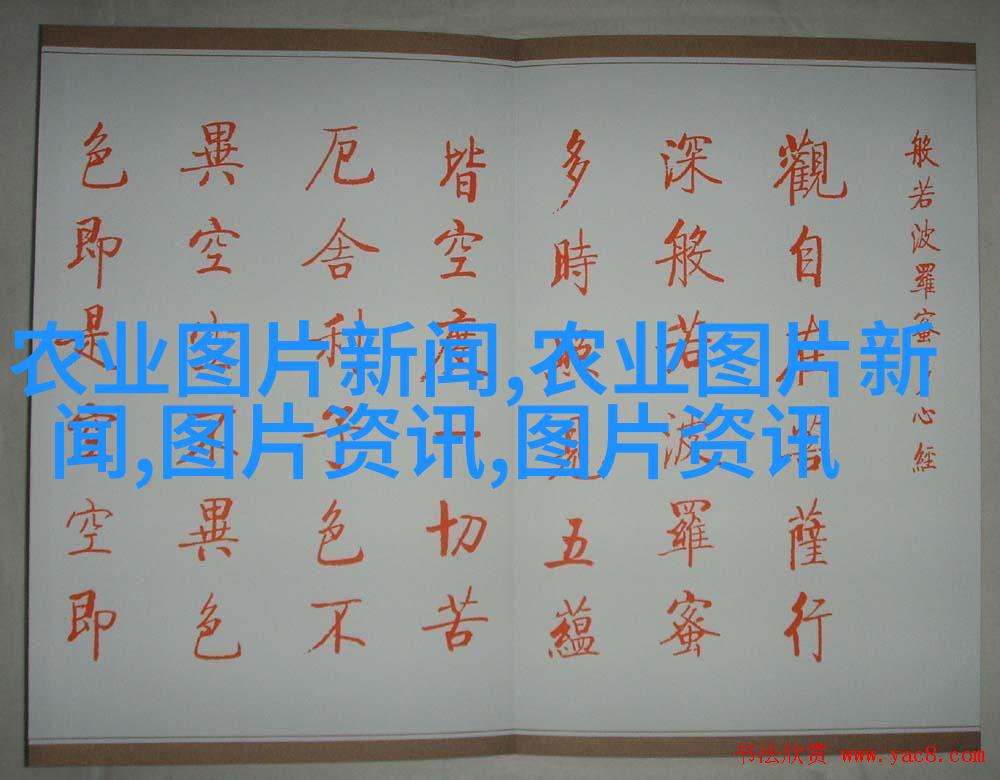 般若波羅蜜多心經
觀自在菩薩行
深般若波羅蜜
多時照見五蘊
皆空度一切苦
厄舍利子色不
異空空不異色
色即是空空即
农业图片新闻,农业图片新
闻,图片资讯,图片资讯
书法欣赏 www.yac8.com